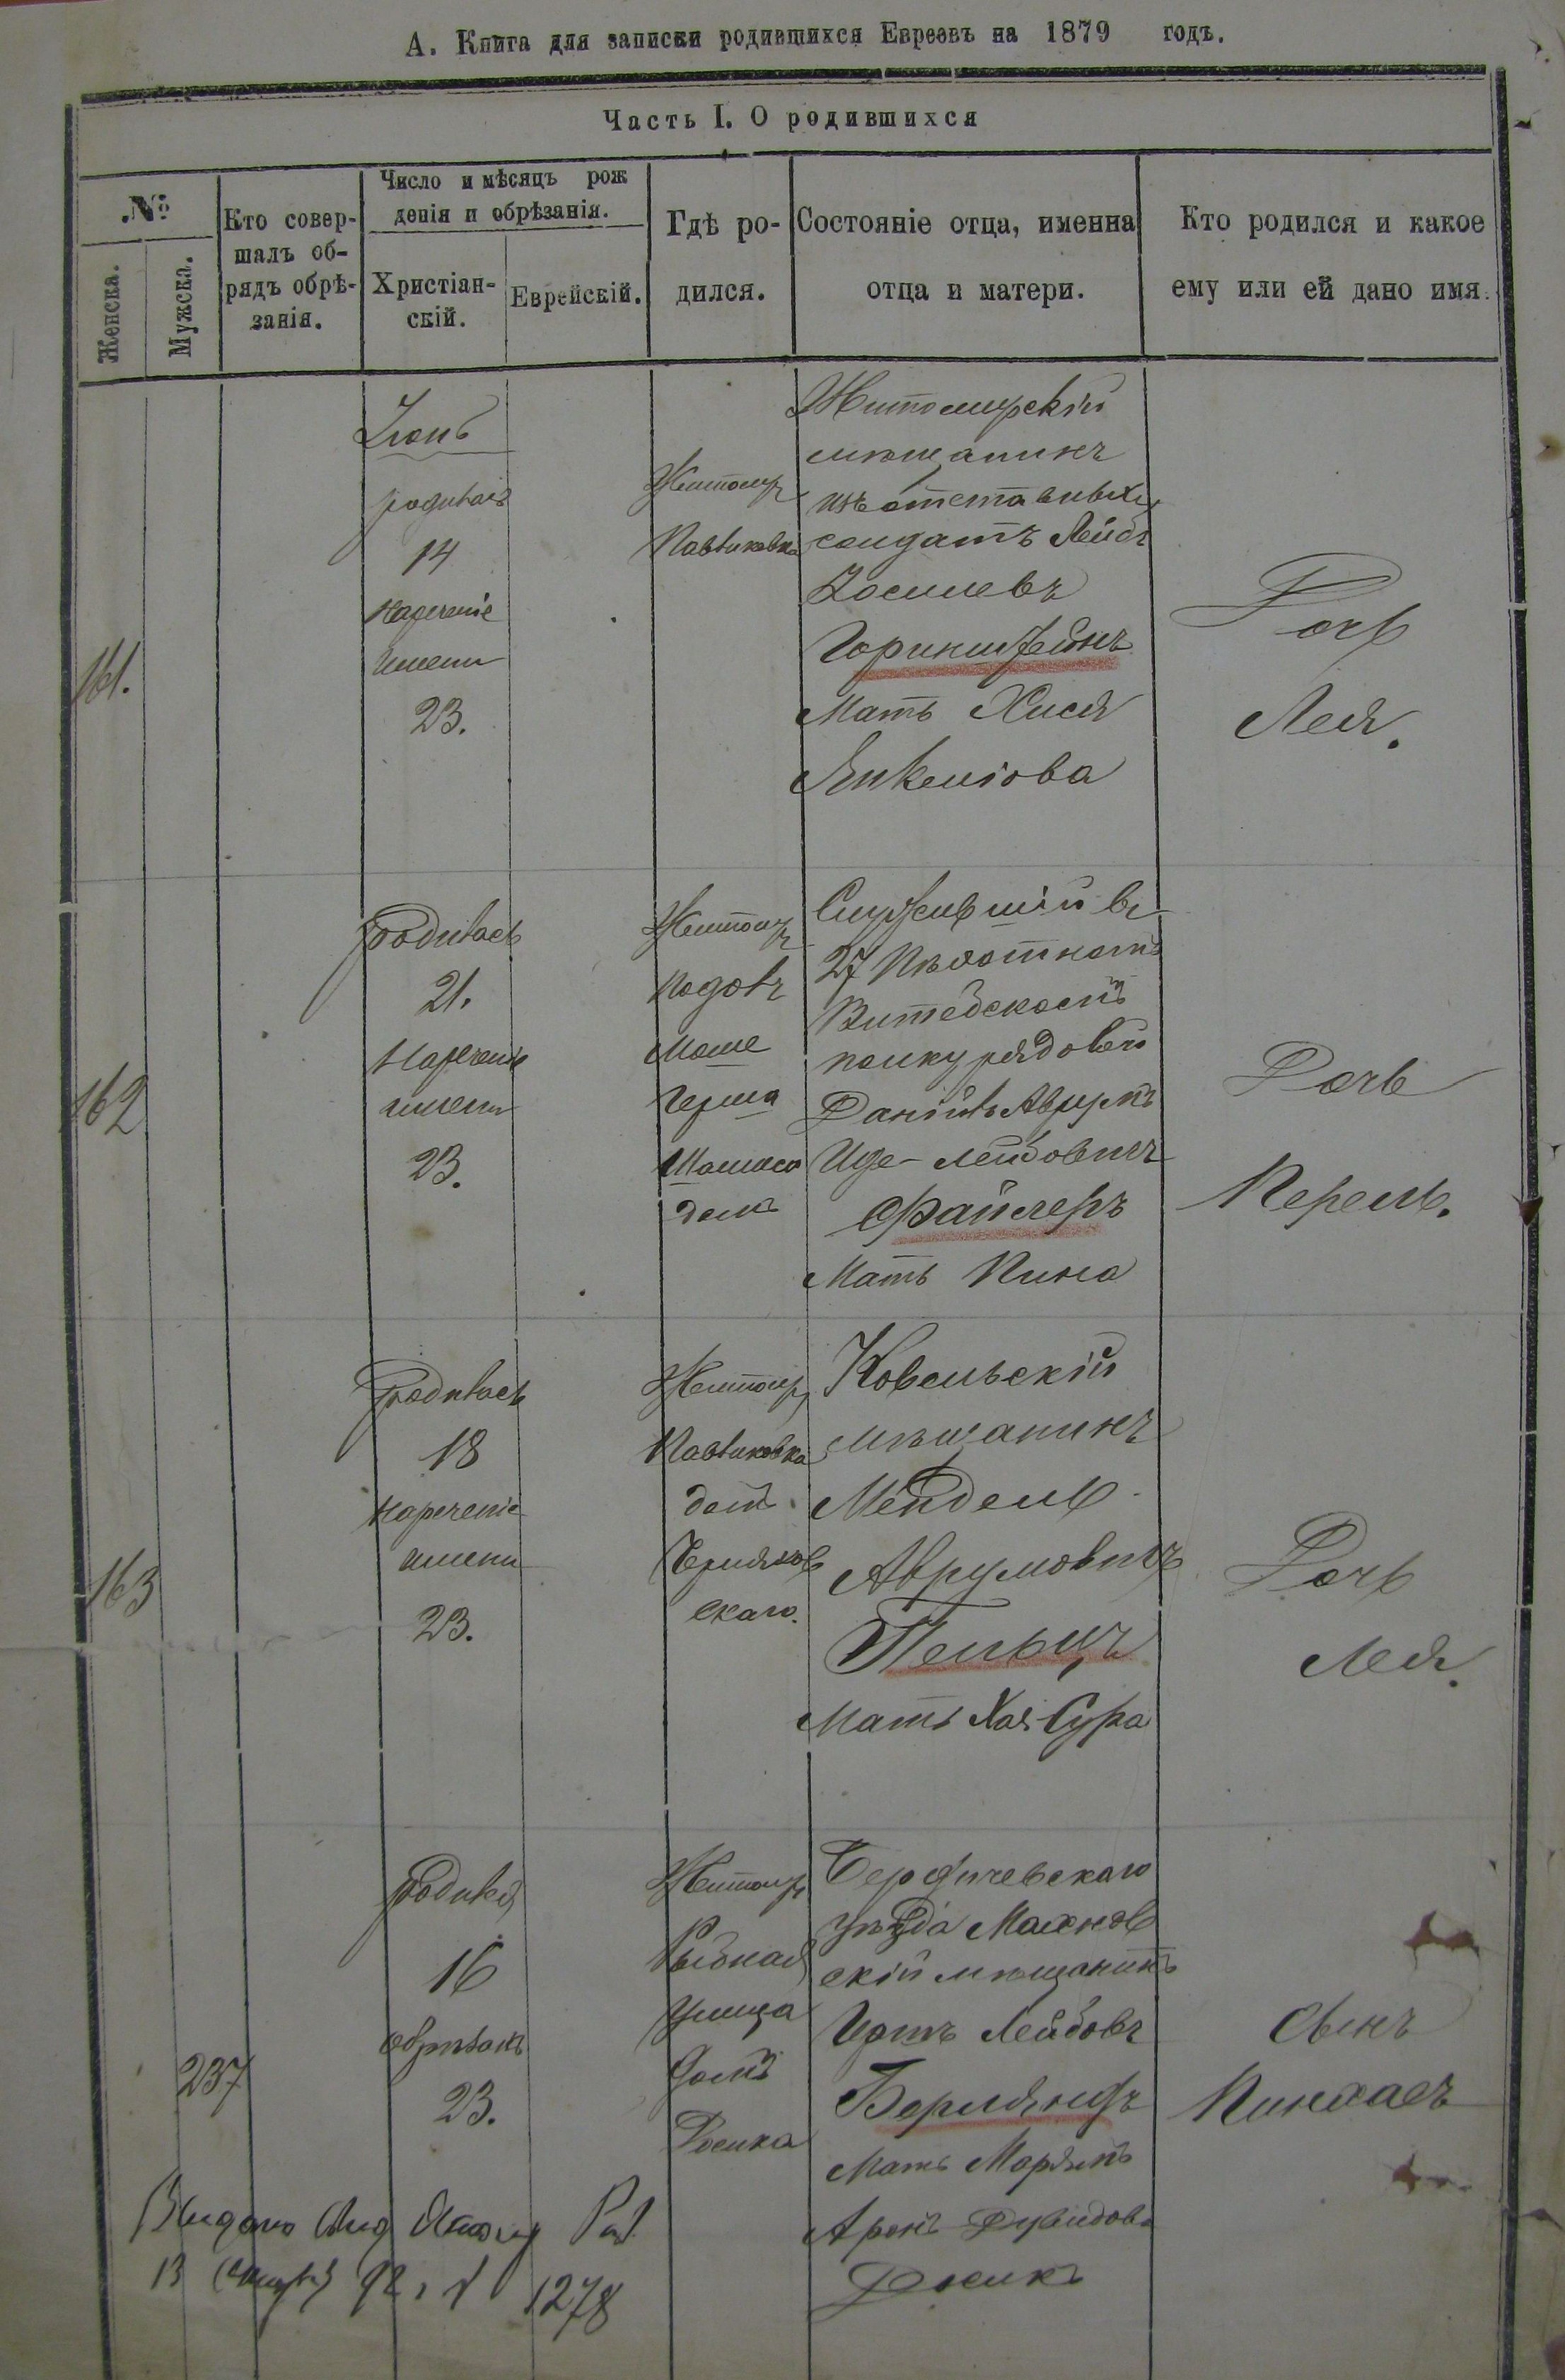 А. Книга для записки родившихся Евреевъ на 1879 годъ.
Часть I. О родившихся
№
Женска.
Мужска.
Кто совер-
шалъ об-
рядъ обрѣ-
занія.
Число и мѣсяцъ рож
денія и обрѣзанія.
Христіан-
скій.
Еврейскій.
Гдѣ ро-
дился.
Состояніе отца, именна
отца и матери.
Кто родился и какое
ему или ей дано имя.
161.
Іюнь
родилась
14
Нареченіе
имени
23.
Житомир
Павликовка
Житомирскій
мѣщанинъ
изъ отставныхъ
солдатъ Лейбъ
Іосилевъ
Горинштейнъ
Мать Хися
Янкеліова
Дочь
Лея.
162
Родилась
21.
Нареченіе
имени
23.
Житомир
Подовъ
Моше
Герша
домъ
Служившій въ
27 Пѣхотномъ
Витебскомъ
полку рядовой
Даніилъ Аврумъ
Иде-Лейбовичъ
Файлеръ
Мать Пина
Дочь
Перель.
163
Родилась
18
Нареченіе
имени
23.
Житомир
Павликовка
домъ
Черняхов
скаго.
Ковельскій
мѣщанинъ
Мендель
Аврумовичъ
Пельцъ
Мать Хая-Сура
Дочь
Лея.
237
Родился
16
Обрѣзанъ
23.
Житомир
Рыбная
Улица
Домъ
Фоика
Бердичевскаго
уѣзда Махнов
скій мѣщанинъ
Ицтъ Лейбовъ
Берляндъ
Мать Марьямъ
Аронъ Дувидова
Сынъ
Пинхасъ
Видано
13 92 г. 1278